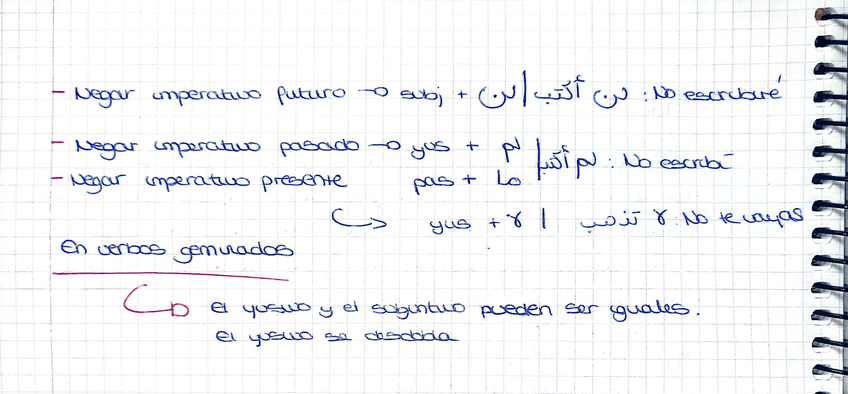 - Negar imperativo futuro → subj + لن | لن أكتب : No escribiré
- Negar imperativo pasado → yus + لم | لم أكتب : No escribí
- Negar imperativo presente pas + ما
↳ yus + لا | لا تذهب : No te vayas
En verbos geminados
↳ El yusivo y el subjuntivo pueden ser iguales.
El yusivo se desdobla